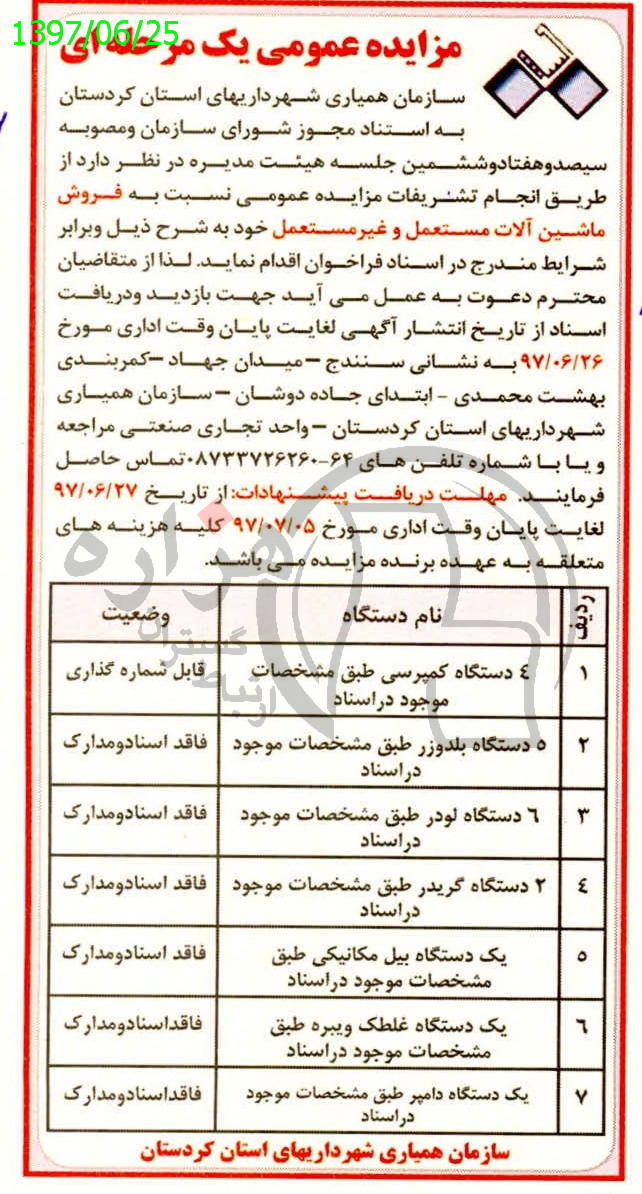 1397/06/25
مزایده عمومی یک مرحله ای
سازمان همیاری شهرداریهای استان کردستان
به استناد مجوز شورای سازمان ومصوبه
سیصدوهفتادوششمین جلسه هیئت مدیره در نظر دارد از
طریق انجام تشریفات مزایده عمومی نسبت به فروش
ماشین آلات مستعمل و غیرمستعمل خود به شرح ذیل وبرابر
شرایط مندرج در اسناد فراخوان اقدام نماید. لذا از متقاضیان
محترم دعوت به عمل می آید جهت بازدید ودریافت
اسناد از تاریخ انتشار آگهی لغایت پایان وقت اداری مورخ
۹۷/۰۶/۲۶ به نشانی سنندج –میدان جهاد –کمربندی
بهشت محمدی - ابتدای جاده دوشان –سازمان همیاری
شهرداریهای استان کردستان –واحد تجاری صنعتی مراجعه
و یا با شماره تلفن های ۶۴-۰۸۷۳۳۷۲۶۲۶۰تماس حاصل
فرمایند. مهلت دریافت پیشنهادات: از تاریخ ۹۷/۰۶/۲۷
لغایت پایان وقت اداری مورخ ۹۷/۰۷/۰۵ کلیه هزینه های
متعلقه به عهده برنده مزایده می باشد.
ردیف نام دستگاه وضعیت
۱ ٤ دستگاه کمپرسی طبق مشخصات قابل شماره گذاری
موجود دراسناد
۲ ٥ دستگاه بلدوزر طبق مشخصات موجود فاقد اسنادومدارک
دراسناد
۳ ٦ دستگاه لودر طبق مشخصات موجود فاقد اسنادومدارک
دراسناد
٤ ۲ دستگاه گریدر طبق مشخصات موجود فاقد اسنادومدارک
دراسناد
٥ یک دستگاه بیل مکانیکی طبق فاقد اسنادومدارک
مشخصات موجود دراسناد
٦ یک دستگاه غلطک ویبره طبق فاقداسنادومدارک
مشخصات موجود دراسناد
۷ یک دستگاه دامپر طبق مشخصات موجود فاقداسنادومدارک
دراسناد
سازمان همیاری شهرداریهای استان کردستان
هزاره
گستران
ارتباط